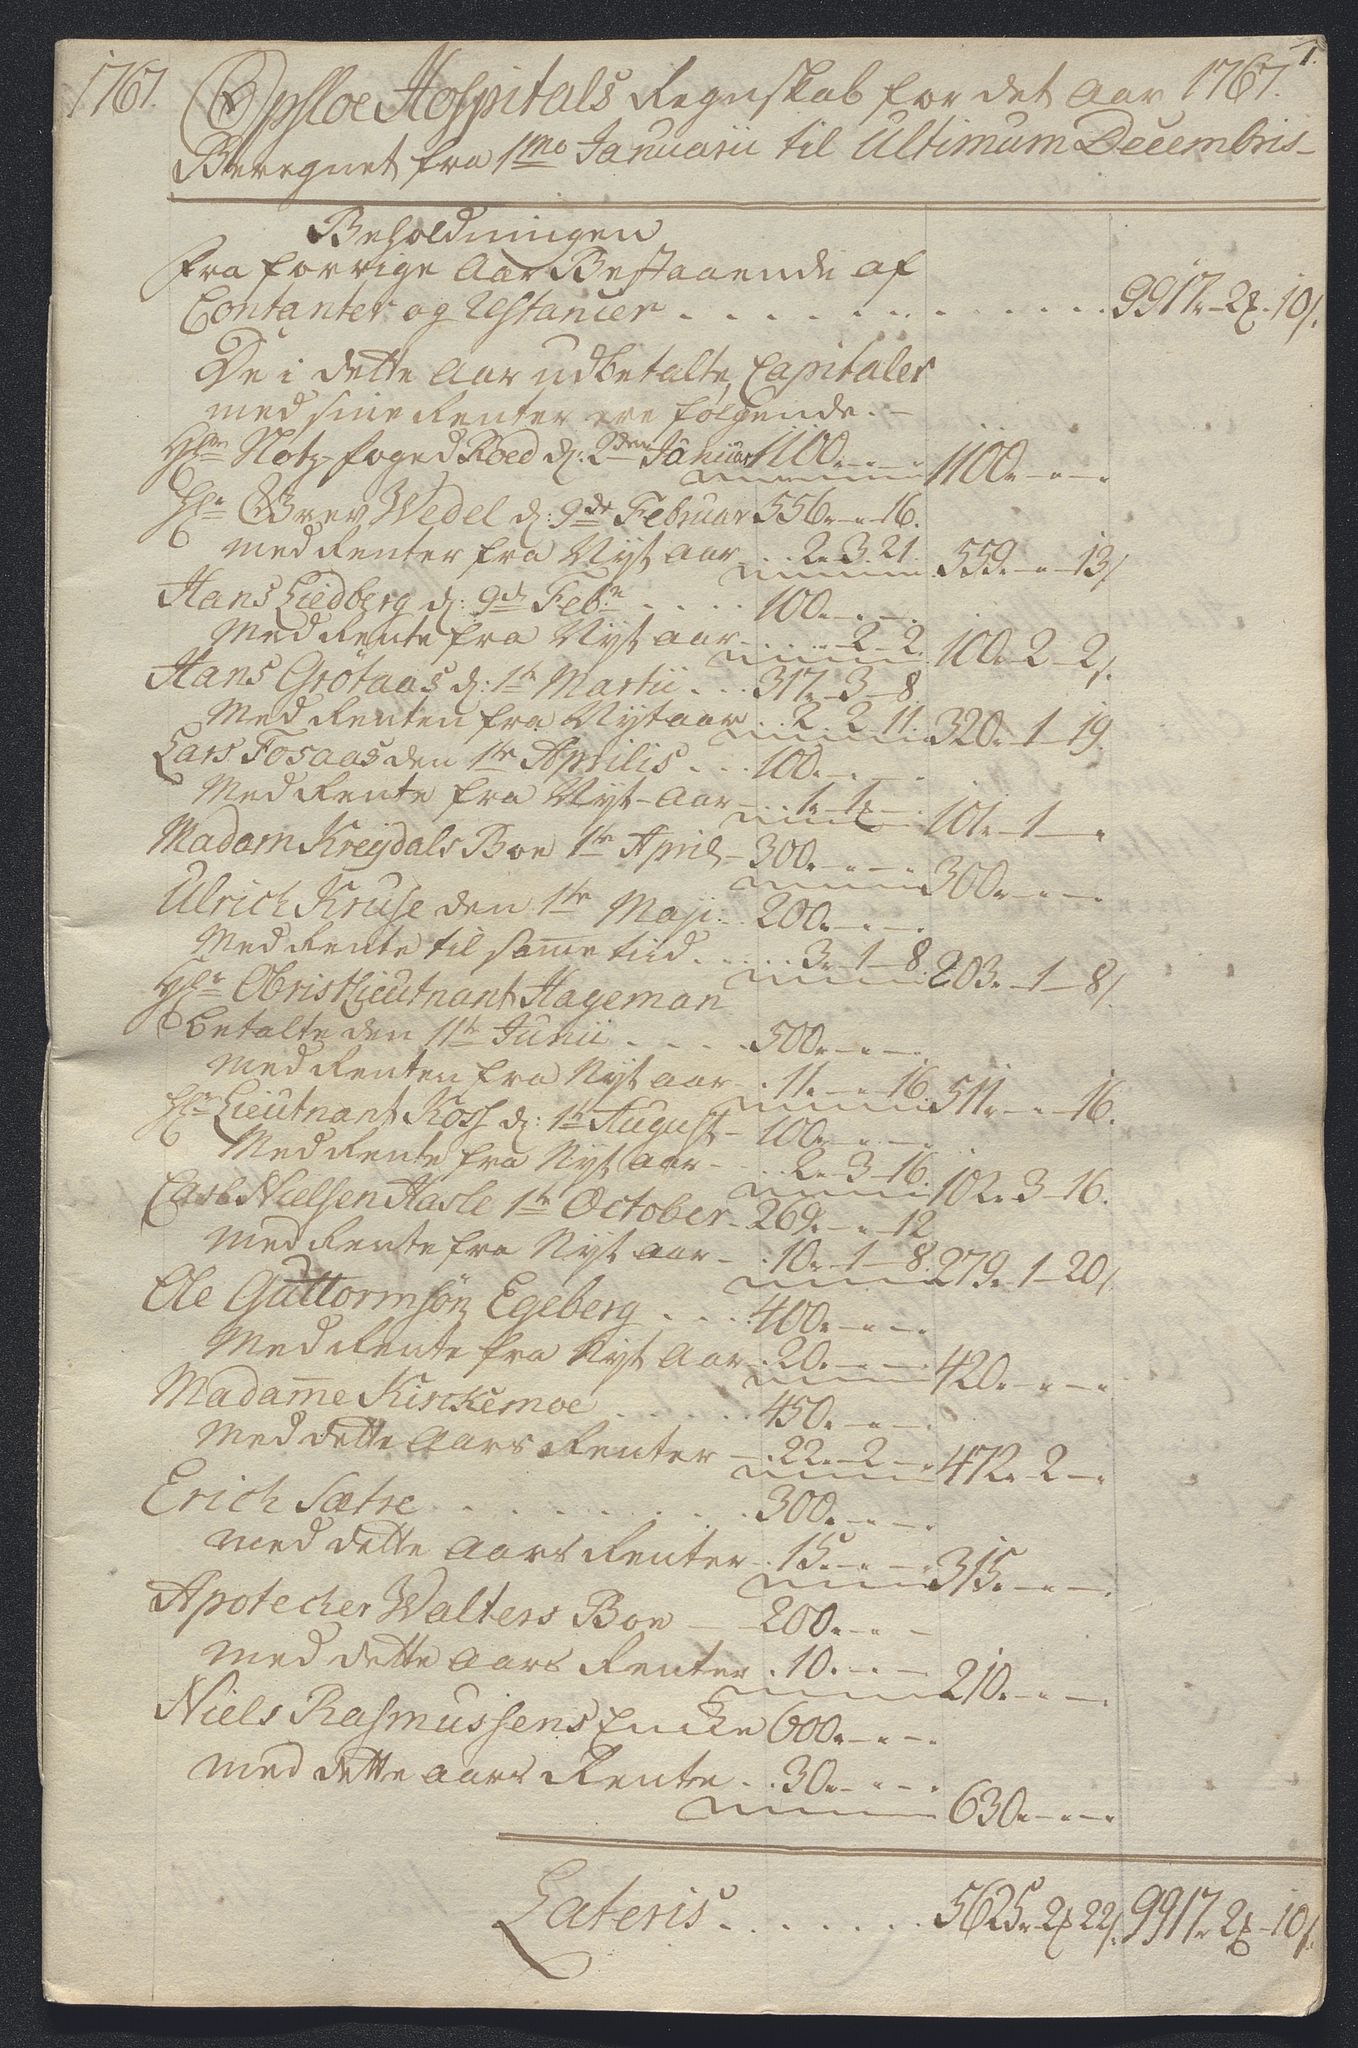 1.
1767. Opsloe Hospitals Regnskab for det Aar 1767.
Beregnet fra 1mo Januarii til Ultimum Decembris -
Beholdningen
fra forrige Aar Bestaaende af
Contanter og Restancer . . . . . . . . . . . 9917 - 2 - 10 s.
De i dette Aar udbetalte Capitaler
med sine Renter ere følgende. -
Hr. Foged Roed d: 2den Januar 1100. - " - " 1100. - " - "
Hr. Grev Wedel d: 9de Februar 556. " - 16.
med Renter fra Nyt aar . . 2. 3. 21. 559. - " - 13 s
Hans Liedberg d: 9d Febr. . . . . 100. - " - "
Med Rente fra Nyt aar . . . " - 2 - 2. 100. - 2 - 2 s.
Hans Grötaas d: 1te Martii . . . 317. - 3 - 8
Med Renten fra Nyt aar . . 2. 2. 11. 320. - 1 - 19.
Lars Fosaas den 1te Aprilis . . . 100. - " - "
Med Rente fra Nyt-Aar - . . 1. - 1. - " 101. - 1 - "
Madam Kreydals Boe 1te April - 300. - " - " 300. - " - "
Ulrich Kruse den 1te Maji . . 200. - " - "
Med Rente til samme tiid . . . . . 3. - 1 - 8. 203. - 1 - 8 s.
Hr. Obristlieutnant Hageman
betalte den 11te Junii . . . . 500. - " - "
med Renten fra Nyt aar - . 11. - " - 16. 511. - " - 16.
Hr. Lieutnant Koss d: 1te August - 100. - " - "
Med Rente fra Nyt aar - . . . 2. - 3 - 16. 102. 3 - 16.
Nielsen Hasle 1te October - 269. - " - 12
Med Rente fra Nyt aar - . 10. - 1 - 8. 279. - 1 - 20 s
Ole Guttormsøn Egeberg . . . . 400. - " - "
Med Rente fra Nyt Aar - . 20. - " - " 420. - " - "
Madame Kirckemoe . . . . . . 450. - " - "
Med dette Aars Renter - . 22. - 2 - " 472. - 2 - "
Erich Sætre . . . . . . . . . 300. - " - "
med dette Aars Renter - . 15. - " - " 315. - " - "
Apotecher Walters Boe - - 200. - " - "
med dette Aars Renter . 10. - " - " 210. - " - "
Niels Rasmussens Encke 600. - " - "
med dette aars Rente . . 30. - " - " 630. - " - "
Lateris . . . . . . . 5625. - 2 22 s. 9917. 2 - 10 s.